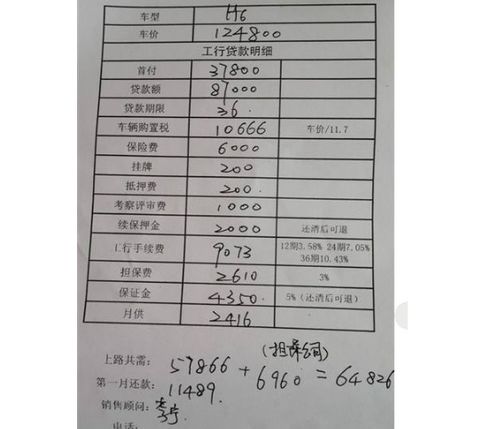 车型 H6
车价 124800
工行贷款明细
首付 37800
贷款额 87000
贷款期限 36.
车辆购置税 10666 车价/11.7
保险费 6000
挂牌 200
抵押费 200.
考察评审费 1000
续保押金 2000 还清后可退
工行手续费 9073 12期3.58% 24期7.05%
36期10.43%
担保费 2610 3%
保证金 4350. 5%（还清后可退）
月供 2416
(担保公司)
上路共需: 57866 + 6960 = 64826
第一月还款: 11489.
销售顾问:
电话: